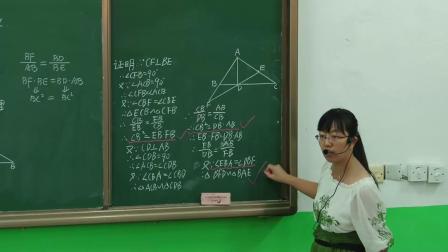 BF/AB = BD/BE
BF·BE = BD·AB
BC² = BC²
证明:∵CF⊥BE
∴∠CFB=90°
∴∠ACB=90°
∴∠CFB=∠ACB
又∵∠CBF=∠CBE
∴△ECB∽△CFB
∴CB/FB = EB/CB
∴CB²=EB·FB
又∵CD⊥AB
∴∠CDB=90°
∴∠ACB=∠CDB
又∵∠CBA=∠CBD
∴△ACB∽△CDB
∴CB/DB = AB/CB
∴CB²=DB·AB
∴EB·FB=DB·AB
∴EB/DB = AB/FB
又∵∠EBA=∠DBF
∴△BFD∽△BAE
A
B
C
D
E
F